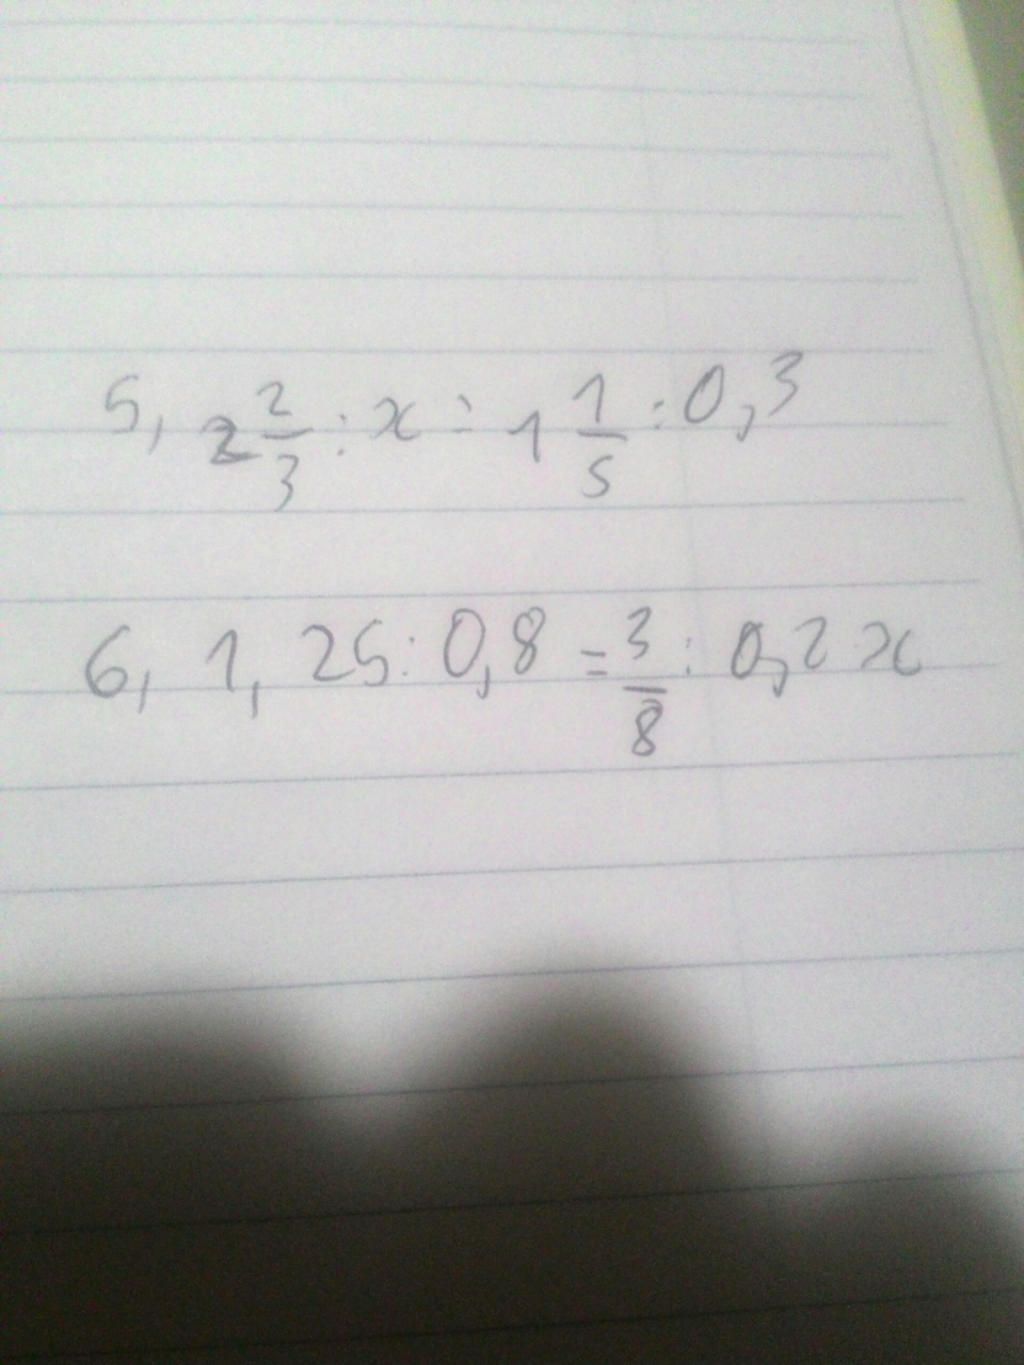 5, 2 2/3 : x = 1 1/5 : 0,3
6, 1,25 : 0,8 = 3/8 : 0,2 x